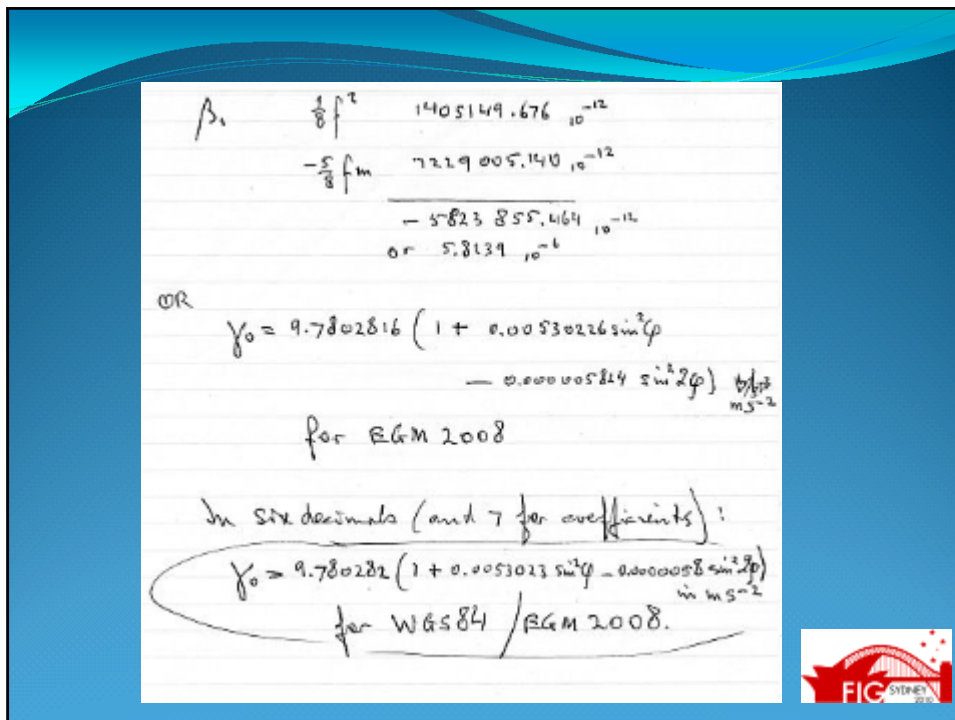 β₁ ⅛f² 1405149.676 ₁₀⁻¹²
-⅝fm 7229005.140 ₁₀⁻¹²
- 5823 855.464 ₁₀⁻¹²
or 5.8239 ₁₀⁻⁶
OR
γ₀ = 9.7802816 (1 + 0.00530226 sin²φ
- 0.000005824 sin²2φ)
ms⁻²
for EGM 2008
In six decimals (and 7 for coefficients):
γ₀ = 9.780282 (1 + 0.0053023 sin²φ - 0.0000058 sin²2φ)
in ms⁻²
for WGS84 / EGM 2008.
FIG SYDNEY
2010